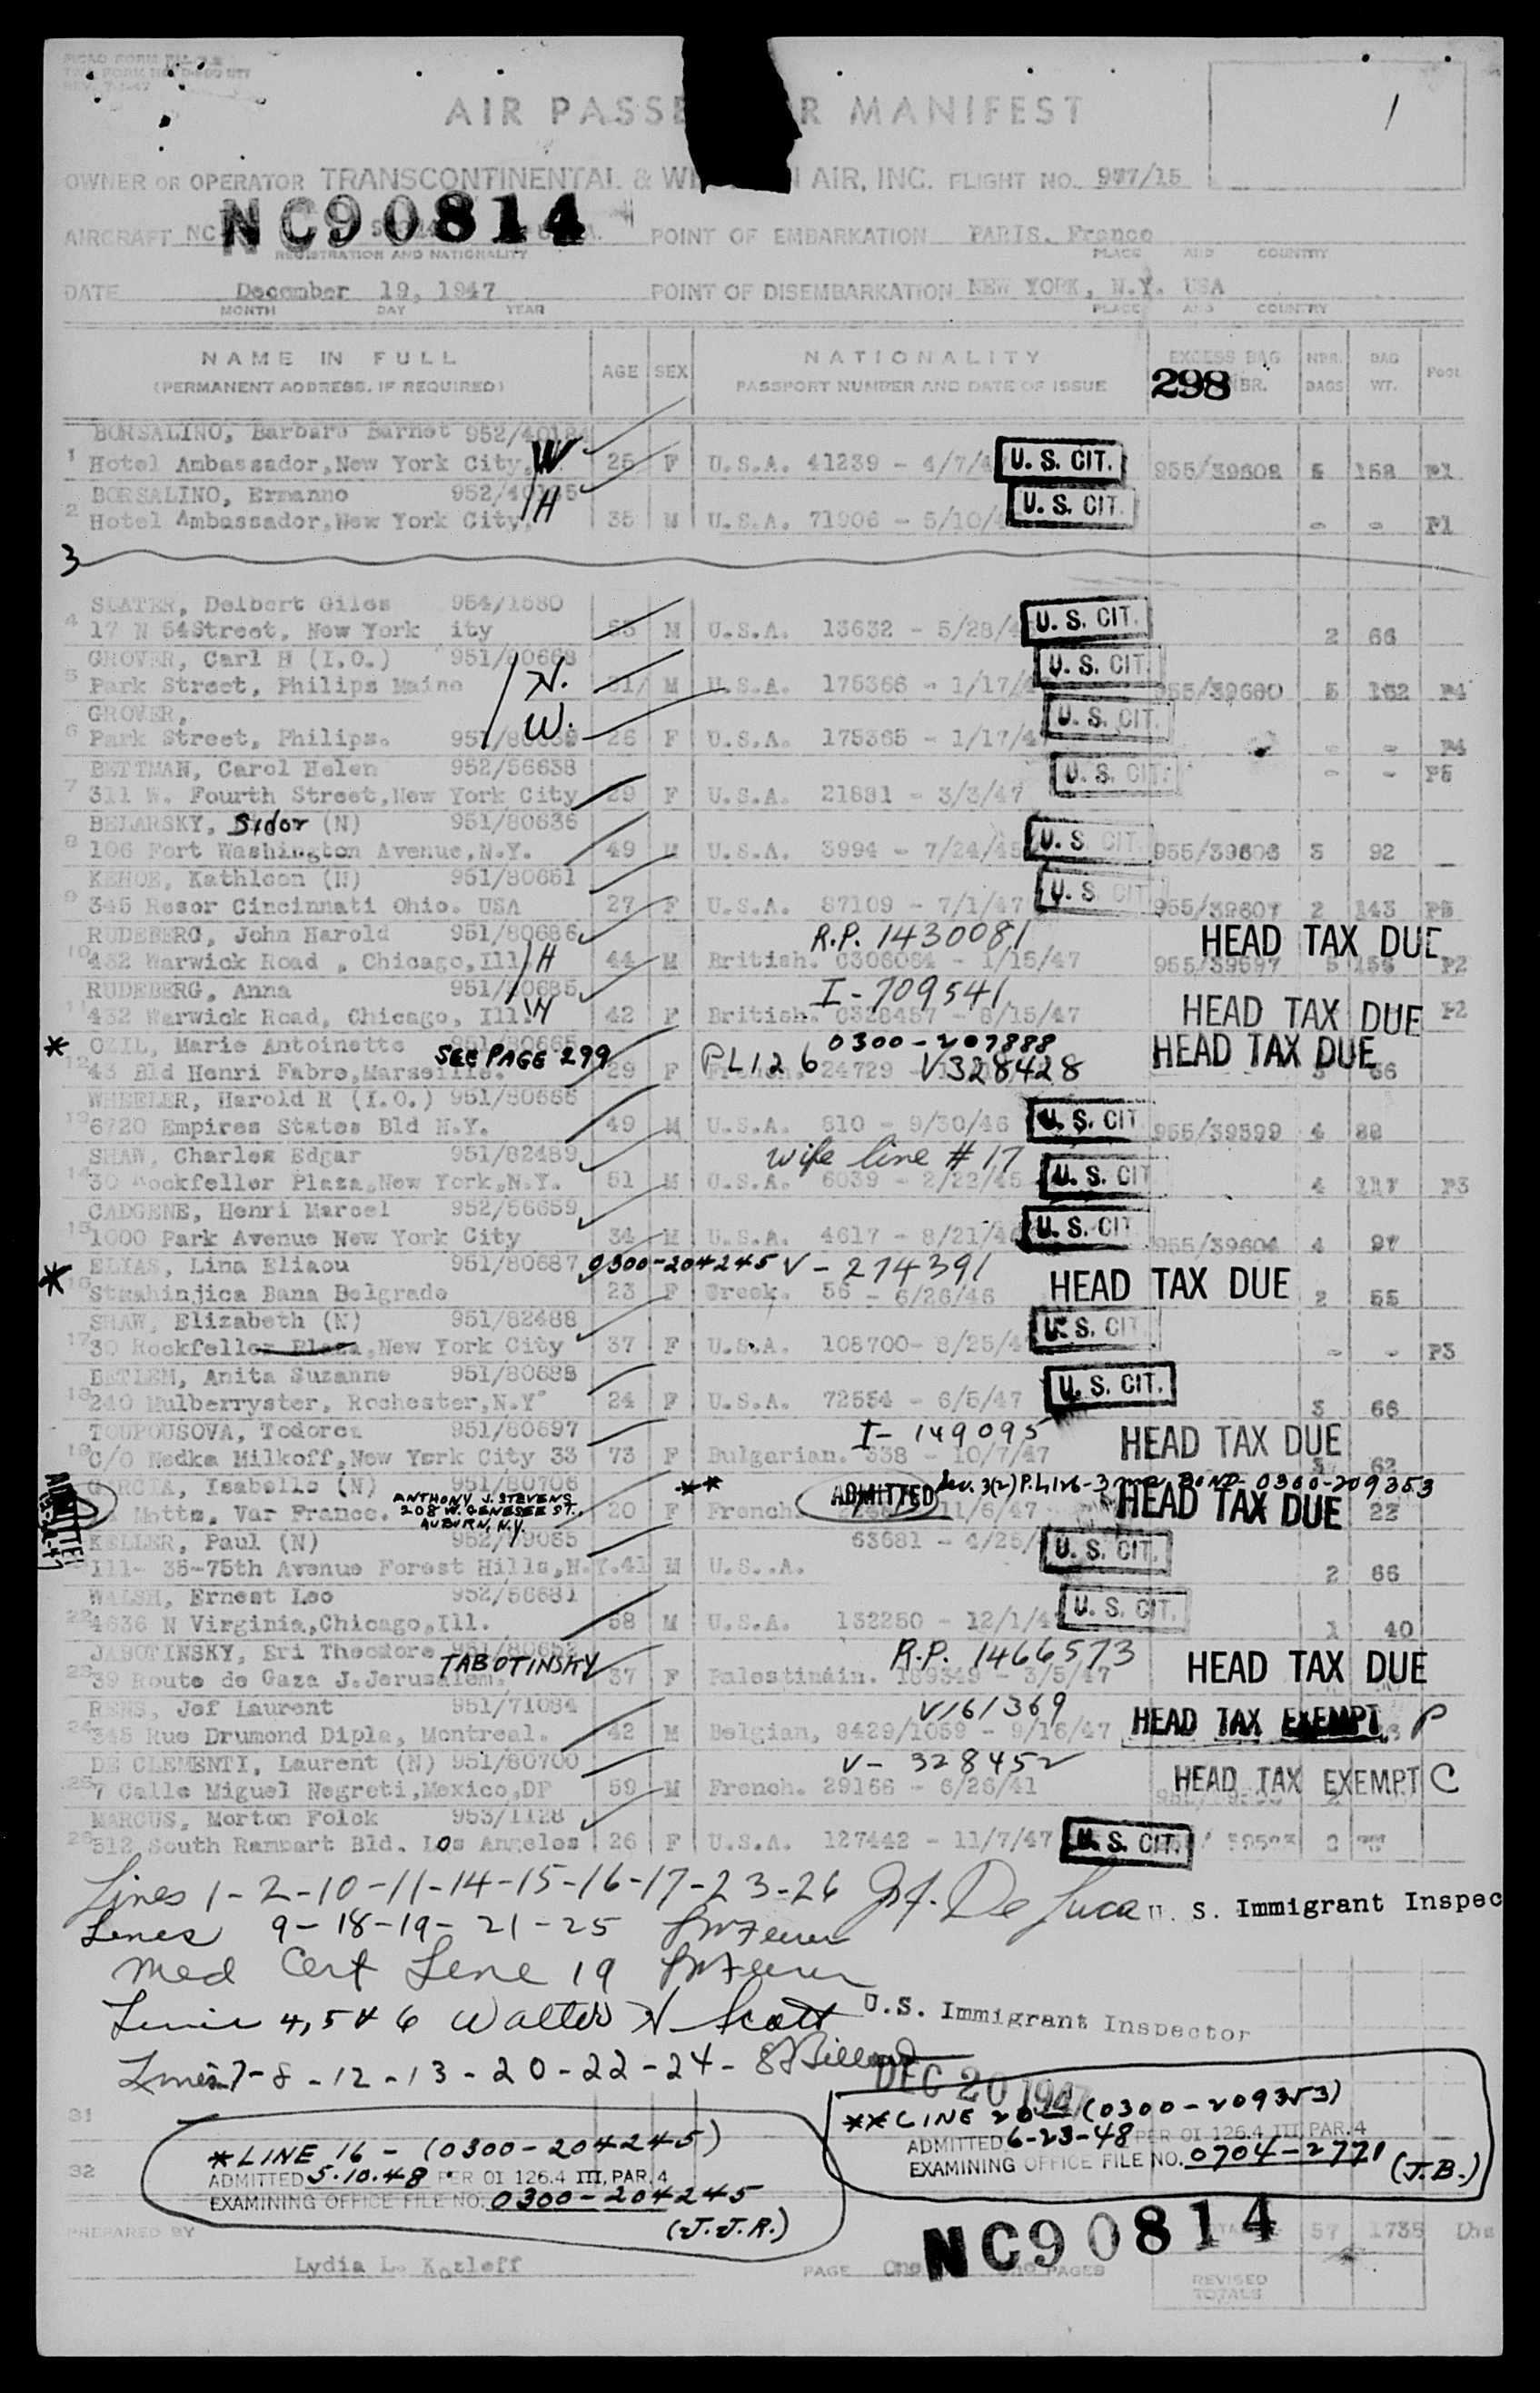 AIR PASSE R MANIFEST
1
OWNER OR OPERATOR TRANSCONTINENTAL & WE N AIR, INC. FLIGHT NO. 937/15
AIRCRAFT NC NC90814 POINT OF EMBARKATION PARIS. France
REGISTRATION AND NATIONALITY PLACE AND COUNTRY
DATE December 19, 1947 POINT OF DISEMBARKATION NEW YORK, N.Y. USA
MONTH DAY YEAR PLACE AND COUNTRY
NAME IN FULL AGE SEX NATIONALITY EXCESS BAG NPR. BAG POOL
(PERMANENT ADDRESS. IF REQUIRED) PASSPORT NUMBER AND DATE OF ISSUE 298 NBR. BAGS WT.
BORSALINO, Barbara Barnet 952/40184
1 Hotel Ambassador, New York City, W 25 F U.S.A. 41239 - 4/7/4 U. S. CIT. 955/39602 5 158 P1
BORSALINO, Ermanno 952/40185
2 Hotel Ambassador, New York City, H 35 M U.S.A. 71906 - 5/10/4 U. S. CIT. - - P1
3
SLATER, Delbert Giles 954/1580
4 17 N 54Street, New York ity 53 M U.S.A. 13632 - 5/28/4 U. S. CIT. 2 66
GROVER, Carl H (I.O.) 951/80668
5 Park Street, Philips Maine H. 31/ M U.S.A. 175366 - 1/17/4 U. S. CIT. 955/39680 5 162 P4
GROVER,
6 Park Street, Philips. W. 26 F U.S.A. 175365 - 1/17/4 U. S. CIT. - - P4
BETTMAN, Carol Helen 952/56638 - - P5
7 311 W. Fourth Street, New York City 29 F U.S.A. 21881 - 3/3/47 U. S. CIT.
BELARSKY, Sidor (N) 951/80636
8 106 Fort Washington Avenue, N.Y. 49 M U.S.A. 3994 - 7/24/45 U. S. CIT. 955/39606 3 92 -
KEHOE, Kathleen (N) 951/80651
9 345 Resor Cincinnati Ohio. USA 27 F U.S.A. 87109 - 7/1/47 U. S. CIT 955/39607 2 143 P5
RUDEBERG, John Harold 951/80686 R.P. 1430081 HEAD TAX DUE
10 432 Warwick Road , Chicago, Ill H 44 M British. C306084 - 1/15/47 955/39597 5 154 P2
RUDEBERG, Anna 951/80685 I-709541 HEAD TAX DUE P2
11 432 Warwick Road, Chicago, Ill. W 42 F British. C328457 - 8/15/47
* OZIL, Marie Antoinette 951/80665 SEE PAGE 299 0300-207888 HEAD TAX DUE
12 43 Bld Henri Fabre, Marseille. 29 F PL126 French. 24729 V328428 3 66
WHEELER, Harold R (I.O.) 951/80666
13 6720 Empires States Bld N.Y. 49 M U.S.A. 810 - 9/30/46 U. S. CIT 955/39599 4 88
SHAW, Charles Edgar 951/82489 wife line # 17
14 30 Rockfeller Plaza, New York, N.Y. 51 M U.S.A. 6039 - 2/22/45 U. S. CIT 4 117 P3
CADGENE, Henri Marcel 952/56659
15 1000 Park Avenue New York City 34 M U.S.A. 4617 - 8/21/46 U. S. CIT 955/39604 4 97
* ELYAS, Lina Eliaou 951/80687 0300-204245 V-274391 HEAD TAX DUE
16 Strahinjica Bana Belgrade 23 F Greek. 56 - 6/26/46 2 55
SHAW, Elizabeth (N) 951/82488
17 30 Rockfeller Plaza, New York City 37 F U.S.A. 108700- 8/25/4 U. S. CIT - - P3
BETLEM, Anita Suzanne 951/80688
18 240 Mulberryster, Rochester, N.Y 24 F U.S.A. 72554 - 6/5/47 U. S. CIT. 3 66
TOUPOUSOVA, Todorca 951/80697 I-149095 HEAD TAX DUE
19 C/O Nedka Milkoff, New York City 33 73 F Bulgarian. 338 - 10/7/47 62
ADMITTED GARCIA, Isabelle (N) 951/80706 ** ADMITTED Sec. 3(2) P.L.126-3 mo. BOND 0300-209353
Motte, Var France. ANTHONY J. STEVENS 208 W. GENESEE ST. AUBURN, N.Y. 20 F French 11/6/47 HEAD TAX DUE 22
KELLER, Paul (N) 952/79085 63681 - 4/25/
111- 35-75th Avenue Forest Hills, N.Y. 41 M U.S..A. U. S. CIT. 2 66
WALSH, Ernest Leo 952/56681
22 4636 N Virginia, Chicago, Ill. 58 M U.S.A. 132250 - 12/1/4 U. S. CIT. 1 40
JABOTINSKY, Eri Theodore 951/80652 TABOTINSKY R.P. 1466573 HEAD TAX DUE
23 39 Route de Gaza J.Jerusalem. 37 F Palestinain. 189349 - 3/5/47
RENS, Jef Laurent 951/71084 V161369 HEAD TAX EXEMPT P
24 345 Rue Drumond Dipla, Montreal. 42 M Belgian, 8429/1059 - 9/16/47
DE CLEMENTI, Laurent (N) 951/80700 V- 328452 HEAD TAX EXEMPT C
25 7 Calle Miguel Negreti, Mexico, DF 59 M French. 29166 - 6/26/41
MARCUS, Morton Folck 953/1128
26 512 South Rampart Bld. Los Angeles 26 F U.S.A. 127442 - 11/7/47 U. S. CIT.
Lines 1-2-10-11-14-15-16-17-23-26 De Luca U. S. Immigrant Inspec
Lines 9-18-19-21-25
Med Cert Line 19
Lines 4,5 & 6 Walter H Scott U.S. Immigrant Inspector
Lines 7-8-12-13-20-22-24-
DEC 20 1947
31
32
*LINE 16 - (0300-204245)
ADMITTED 5.10.48 PER OI 126.4 III, PAR. 4
EXAMINING OFFICE FILE NO. 0300-204245
(J.J.R.)
**LINE 20 (0300-209353)
ADMITTED 6-23-48 PER OI 126.4 III, PAR. 4
EXAMINING OFFICE FILE NO. 0704-2771 (J.B.)
PREPARED BY NC90814 57 1735
Lydia L. Kozleff PAGE One PAGES
REVISED
TOTALS